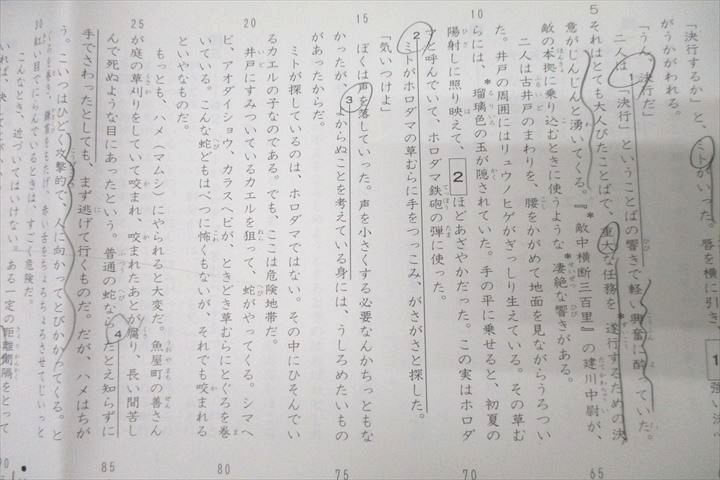 「決行するか」と、ミトがいった。唇を横に引き、
がうかがわれる。
「うん、決行だ」
二人は、「決行」ということばの響きで軽い興奮に酔っていた。
それはとても大人びたことばで、重大な任務を遂行するための決
意がじんじんと湧いてくる。『敵中横断三百里』の建川中尉が、
敵の本拠に乗り込むときに使うような凄絶な響きがある。
二人は古井戸のまわりを、腰をかがめて地面を見ながらうろつい
た。井戸の周囲にはリュウノヒゲがぎっしり生えている。その草む
らには、瑠璃色の玉が隠されていた。手の平に乗せると、初夏の
陽射しに照り映えて、2ほどあざやかだった。この実はホロダ
マと呼んでいて、ホロダマ鉄砲の弾に使った。
ミトがホロダマの草むらに手をつっこみ、がさがさと探した。
「気いつけよ」
ぼくは声を落していった。声を小さくする必要なんかちっともな
かったが、よからぬことを考えている身には、うしろめたいもの
があったからだ。
ミトが探しているのは、ホロダマではない。その中にひそんでい
るカエルの子なのである。でも、ここは危険地帯だ。
井戸にすみついているカエルを狙って、蛇がやってくる。シマヘ
ビ、アオダイショウ、カラスヘビが、ときどき草むらにとぐろを巻
いている。こんな蛇どもはべつに怖くもないが、それでも咬まれる
といやなものだ。
もっとも、ハメ（マムシ）にやられると大変だ。魚屋町の善さん
が庭の草刈りをしていて咬まれ、咬まれたあとが腐り、長い間苦し
んで死ぬような目にあったという。普通の蛇なら、たとえ知らずに
手でさわったとしても、まず逃げて行くものだ。だが、ハメはちが
う。こいつはひどく攻撃的で、人に向かってとびかかってくる。と
ぐろを巻き、鎌首をもたげ、赤い舌をちょろちょろさせてじいっと
紅い目でにらんでいるときは、すごく危険だ。
こんなとき、近づいてはいけない。ある一定の距離間隔をとって